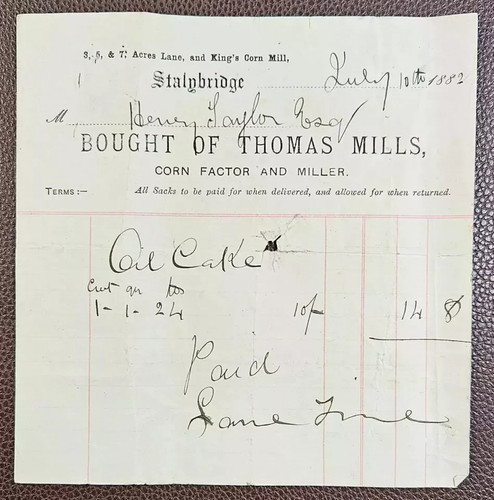 3, 5, & 7, Acres Lane, and King's Corn Mill,
Stalybridge July 10th 1882
M Henry Taylor Esq
BOUGHT OF THOMAS MILLS,
CORN FACTOR AND MILLER.
TERMS:— All Sacks to be paid for when delivered, and allowed for when returned.
Oil Cake
Cwt qr lbs
1-1-24 10/- 14 8
Paid
Same Time